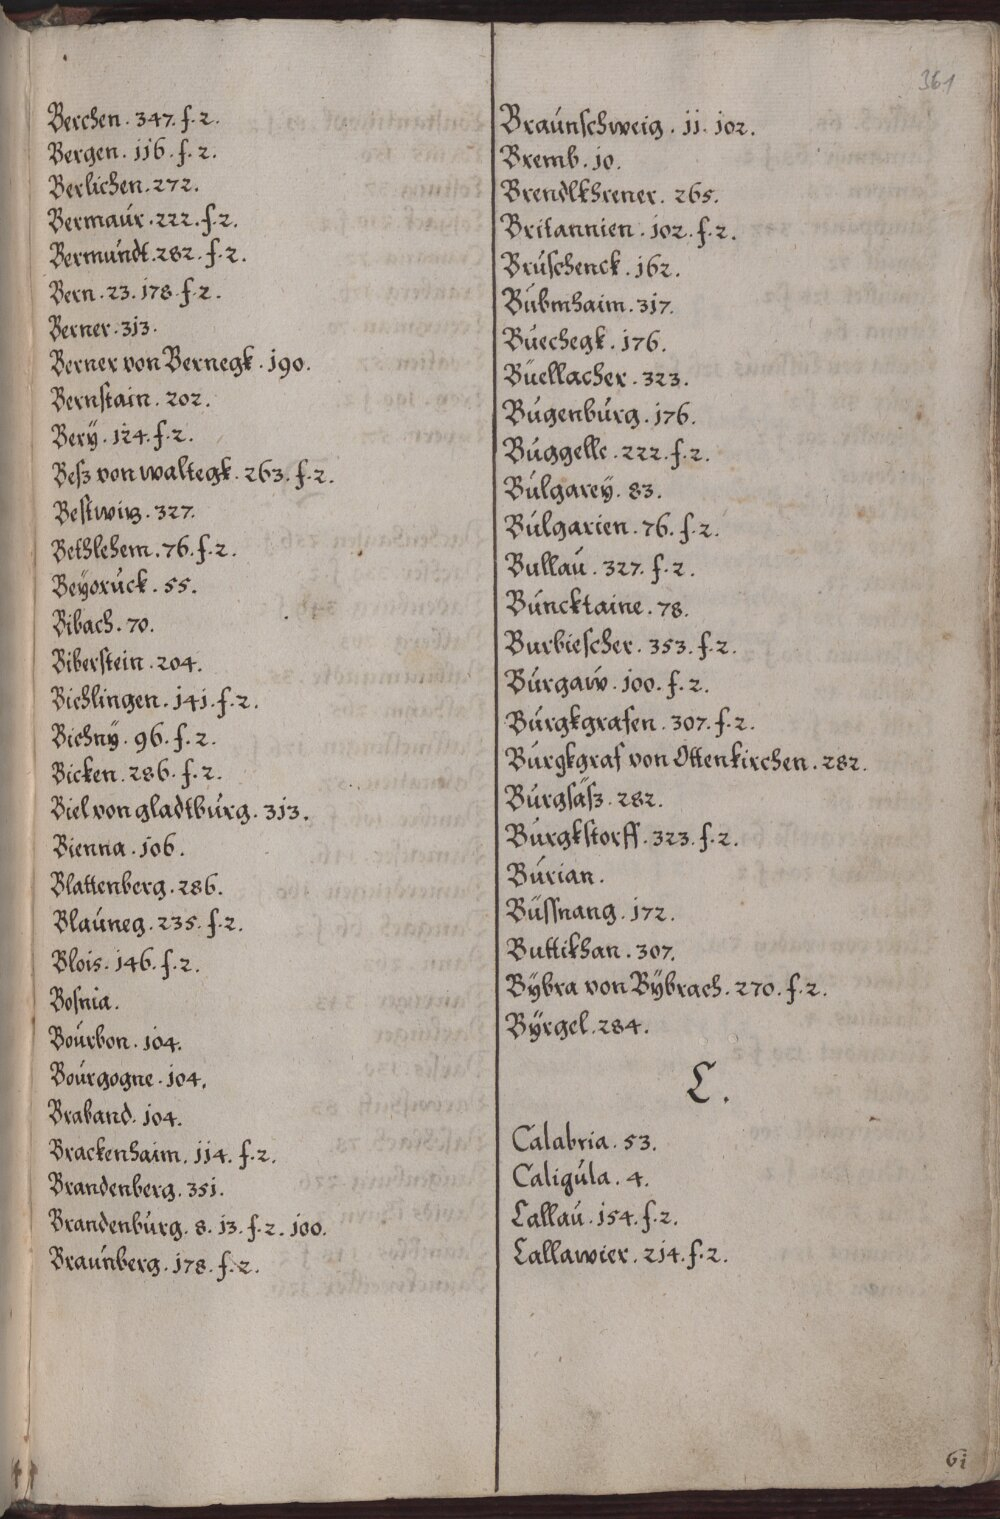 361
Berchen. 347. f. 2.
Bergen. 116. f. 2.
Berlichen. 272.
Bermaur. 222. f. 2.
Bermundt. 282. f. 2.
Bern. 23. 178. f. 2.
Berner. 313.
Berner von Bernegk. 190.
Bernstain. 202.
Berÿ. 124. f. 2.
Besz von waltegk. 263. f. 2.
Bestwitz. 327.
Bethlehem. 76. f. 2.
Beÿoruck. 55.
Bibach. 70.
Biberstein. 204.
Bichlingen. 141. f. 2.
Bichnÿ. 96. f. 2.
Bicken. 286. f. 2.
Biel von gladtburg. 313.
Bienna. 106.
Blattenberg. 286.
Blauneg. 235. f. 2.
Blois. 146. f. 2.
Bosnia.
Bourbon. 104.
Bourgogne. 104.
Braband. 104.
Brackenhaim. 114. f. 2.
Brandenberg. 351.
Brandenburg. 8. 13. f. 2. 100.
Braunberg. 178. f. 2.
Braunschweig. 11. 102.
Bremb. 10.
Brendlkhrener. 265.
Britannien. 102. f. 2.
Bruschenck. 162.
Bubmhaim. 317.
Buechegk. 176.
Büellacher. 323.
Bugenburg. 176.
Buggelle. 222. f. 2.
Bulgareÿ. 83.
Bulgarien. 76. f. 2.
Bullau. 327. f. 2.
Buncktaine. 78.
Burbiescher. 353. f. 2.
Burgaw. 100. f. 2.
Burgkgrafen. 307. f. 2.
Burgkgraf von Ottenkirchen. 282.
Burgsäsz. 282.
Burgkstorff. 323. f. 2.
Burian.
Büssnang. 172.
Buttikhan. 307.
Bÿbra von Bÿbrach. 270. f. 2.
Bÿrgel. 284.
C.
Calabria. 53.
Caligula. 4.
Callau. 154. f. 2.
Callawier. 214. f. 2.
61